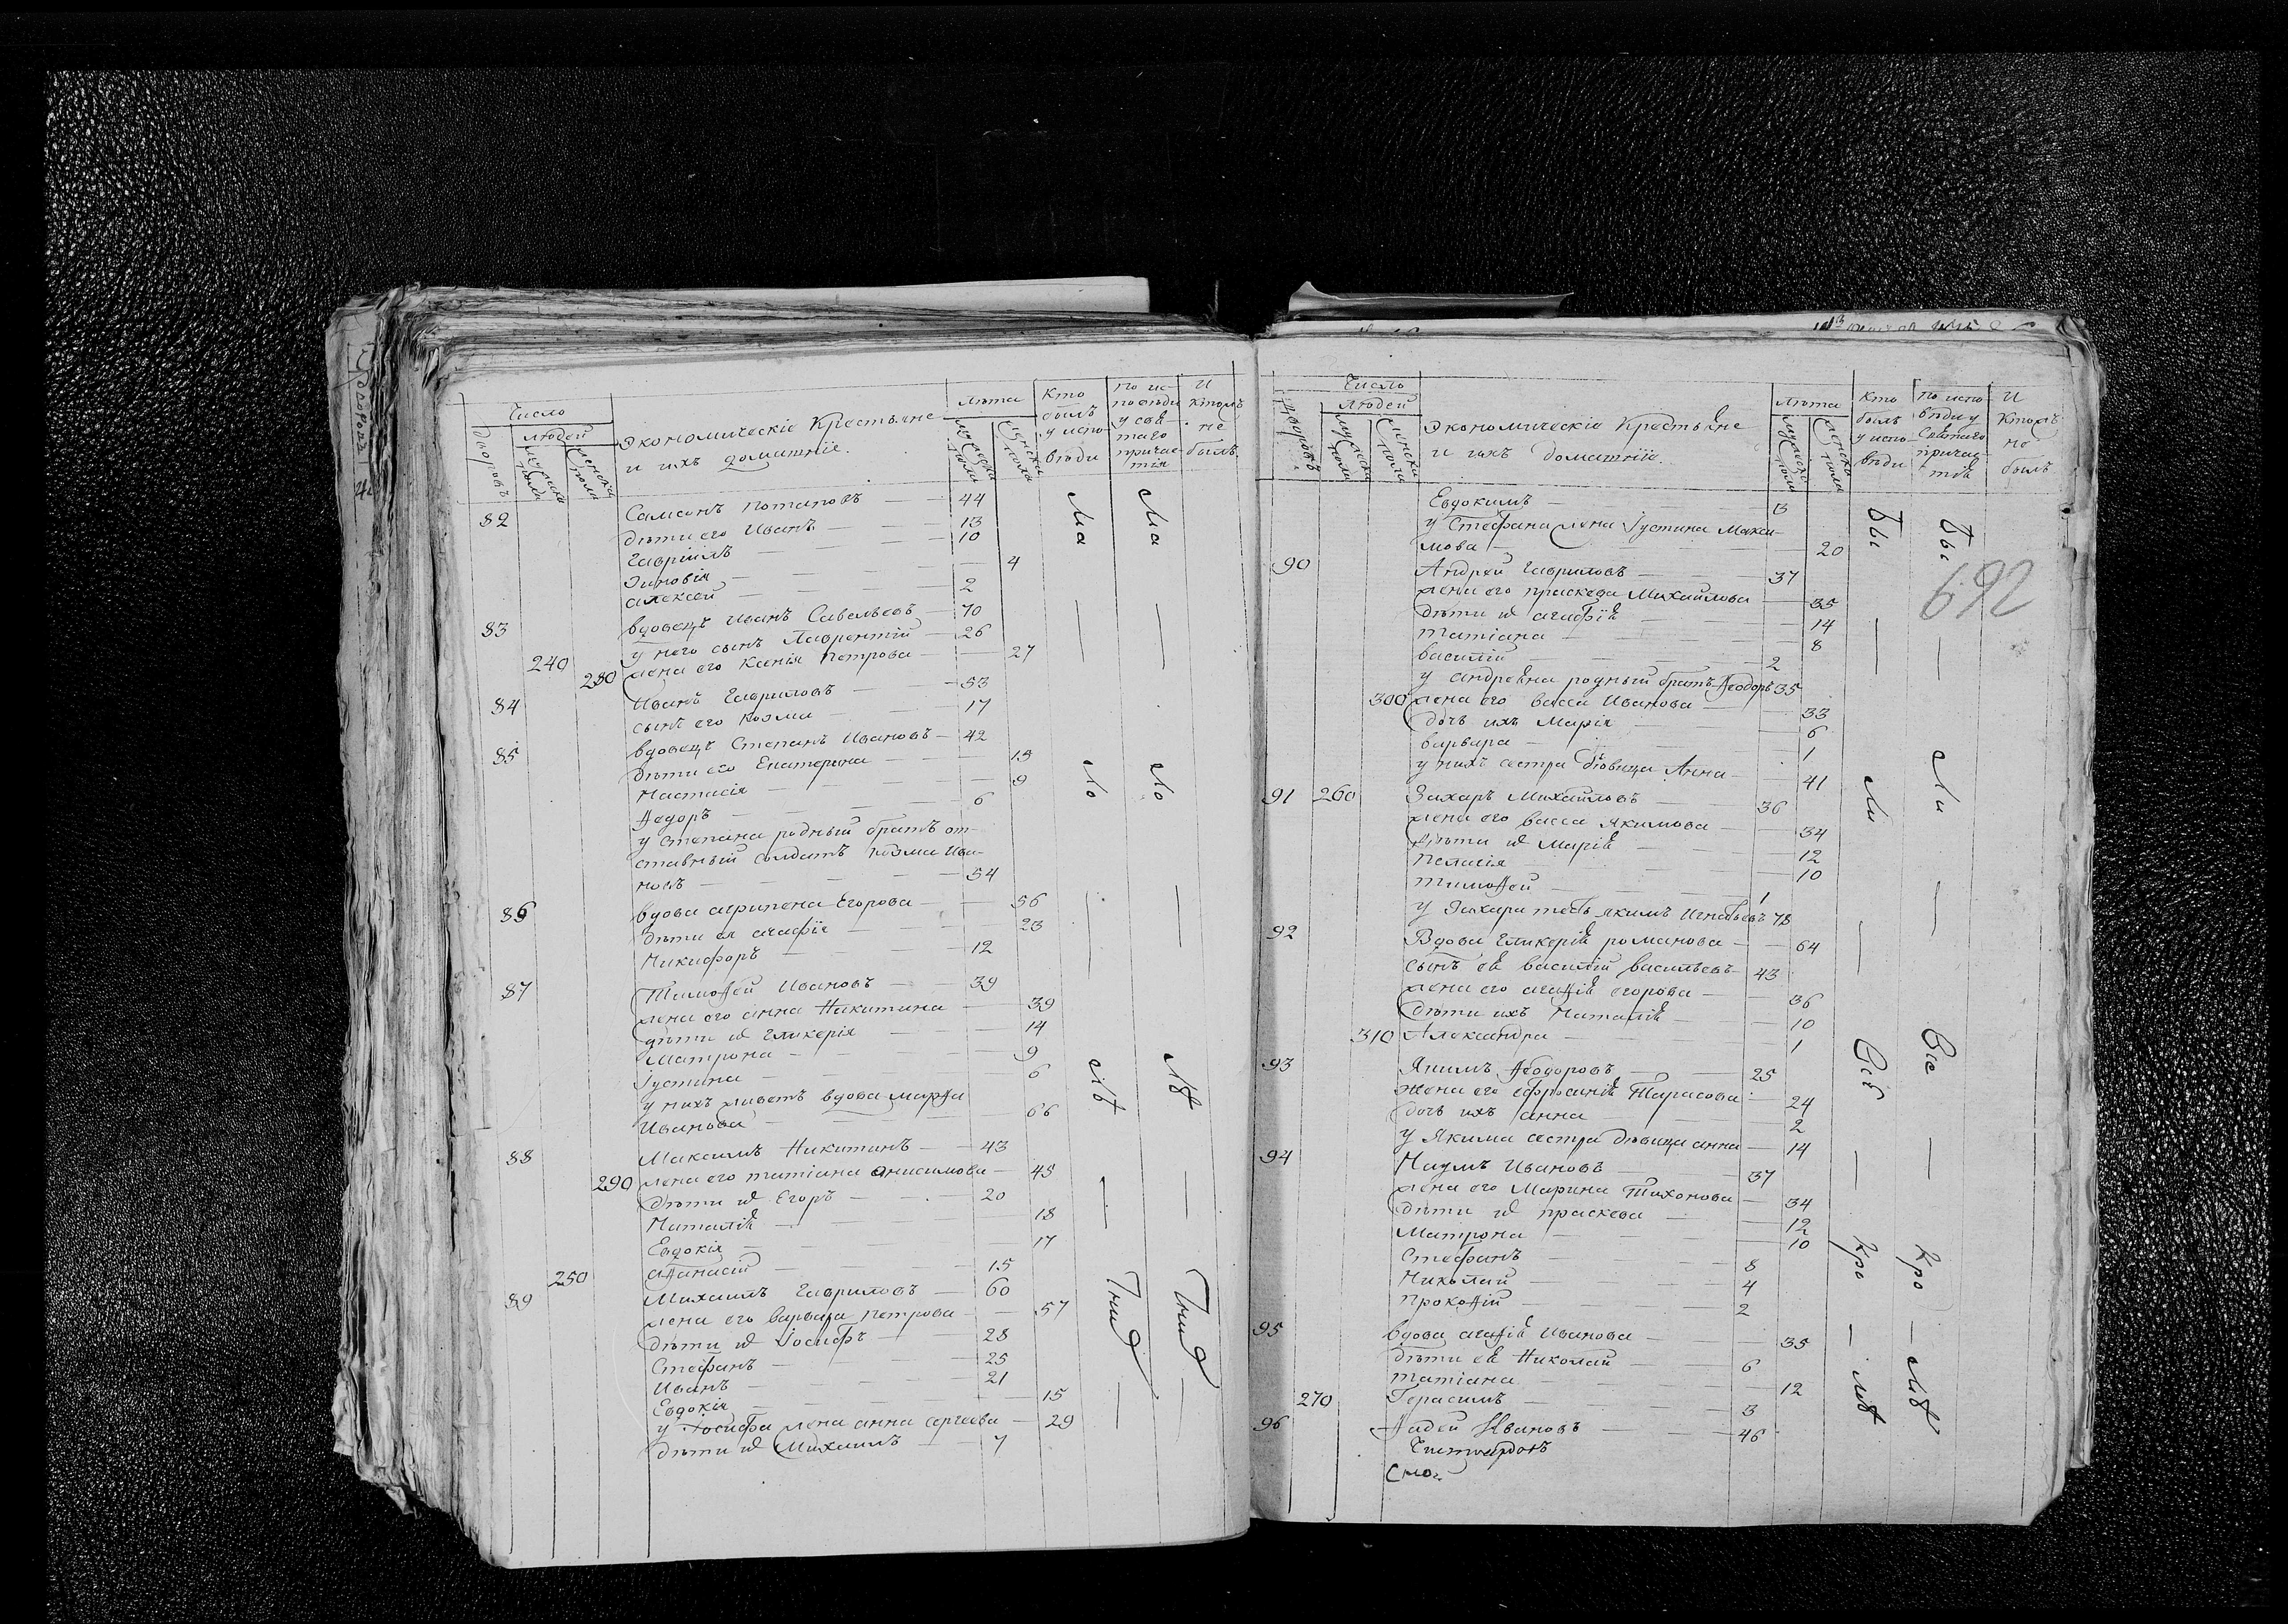 Число
Дворовъ
людей
мужеска пола
женска пола
Экономическіе Крестьяне
и ихъ домашніе.
лѣта
мужеска пола
женска пола
Кто
былъ
у испо-
вѣди
по ис-
повѣди
у свѣ-
таго
причас-
тія
И
ктомъ
не
былъ
82 Самсонъ Потаповъ — 44
дѣти его Иванъ — 13
Гавріилъ — 10
Зиновія — 4
Алексей — 2
83 вдовецъ Иванъ Савельевъ — 70
у него сынъ Лаврентій — 26
240 280 жена его Ксенія Петрова — 27
84 Иванъ Гавриловъ — 53
сынъ его Козма — 17
85 вдовецъ Степанъ Ивановъ — 42
дѣти его Екатерина — 13
Настасія — 9
Ѳедоръ — 6
у Степана родный братъ от-
ставный солдатъ Козма Ива-
новъ — 54
86 вдова агрипена Егорова — 56
дѣти ея агафія — 23
Никифоръ — 12
87 Тимоѳей Ивановъ — 39
жена его анна Никитина — 39
дѣти ихъ Гликерія — 14
Матрона — 9
Іустина — 6
у нихъ живетъ вдова марѳа
Иванова — 66
88 Максимъ Никитинъ — 43
290 жена его татіана анисимова — 45
дѣти ихъ Егоръ — 20
Наталія — 18
Евдокія — 17
250 аѳанасій — 15
89 Михаилъ Гавриловъ — 60
жена его варвара Петрова — 57
дѣти ихъ Іосифъ — 28
Стефанъ — 25
Иванъ — 21
Евдокія — 15
у Іосифа жена анна сергеева — 29
дѣти ихъ Михаилъ — 7
Число
Дворовъ
людей
мужеска пола
женска пола
Экономическіе Крестьяне
и ихъ домашніе.
лѣта
мужеска пола
женска пола
Кто
былъ
у испо-
вѣди
по испо-
вѣди у
Святаго
причас-
тія
И
Ктомъ
не
былъ
692
Евдокимъ — 13
у Стефана жена Іустина Макси-
мова — 20
90 Андрей Гавриловъ — 37
жена его праскева Михайлова — 35
дѣти ихъ агафія — 14
татіана — 8
василій — 2
у андреяна родный братъ Ѳеодоръ 35
300 жена его васса Иванова — 33
дочь ихъ Марія — 6
варвара — 1
у нихъ сестра дѣвица Анна — 41
91 260 Захаръ Михайловъ — 36
жена его васса Якимова — 34
дѣти ихъ Марія — 12
пелагія — 10
тимоѳей — 1
у Захара тесть якимъ Игнатьевъ 78
92 Вдова Гликерія романова — 64
сынъ ея василій васильевъ — 43
жена его агаѳія егорова — 36
дѣти ихъ Наталія — 10
310 Александра — 1
93 Якимъ Ѳеодоровъ — 25
Жена его ефросинія Тарасова — 24
дочь ихъ анна — 2
у Якима сестра дѣвица анна — 14
94 Наумъ Ивановъ — 37
жена его Марина Тихонова — 34
дѣти ихъ праскева — 12
Матрона — 10
Стефанъ — 8
Николай — 4
Прокоѳій — 2
95 вдова агаѳія Иванова — 35
дѣти ея Николай — 6
татіана — 12
270 Герасимъ — 3
96 Ѳадей Ивановъ — 46